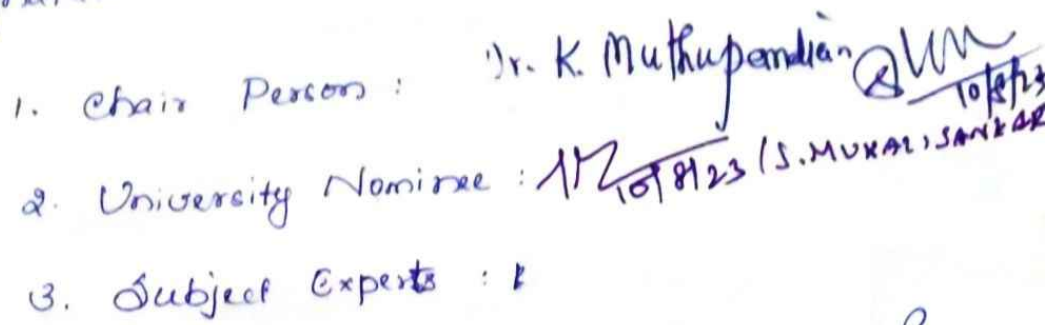 1. Chair Person : Dr. K. Muthupandian 10/8/23
2. University Nominee : 10/8/23 (S. MURALISANKAR
3. Subject Experts :